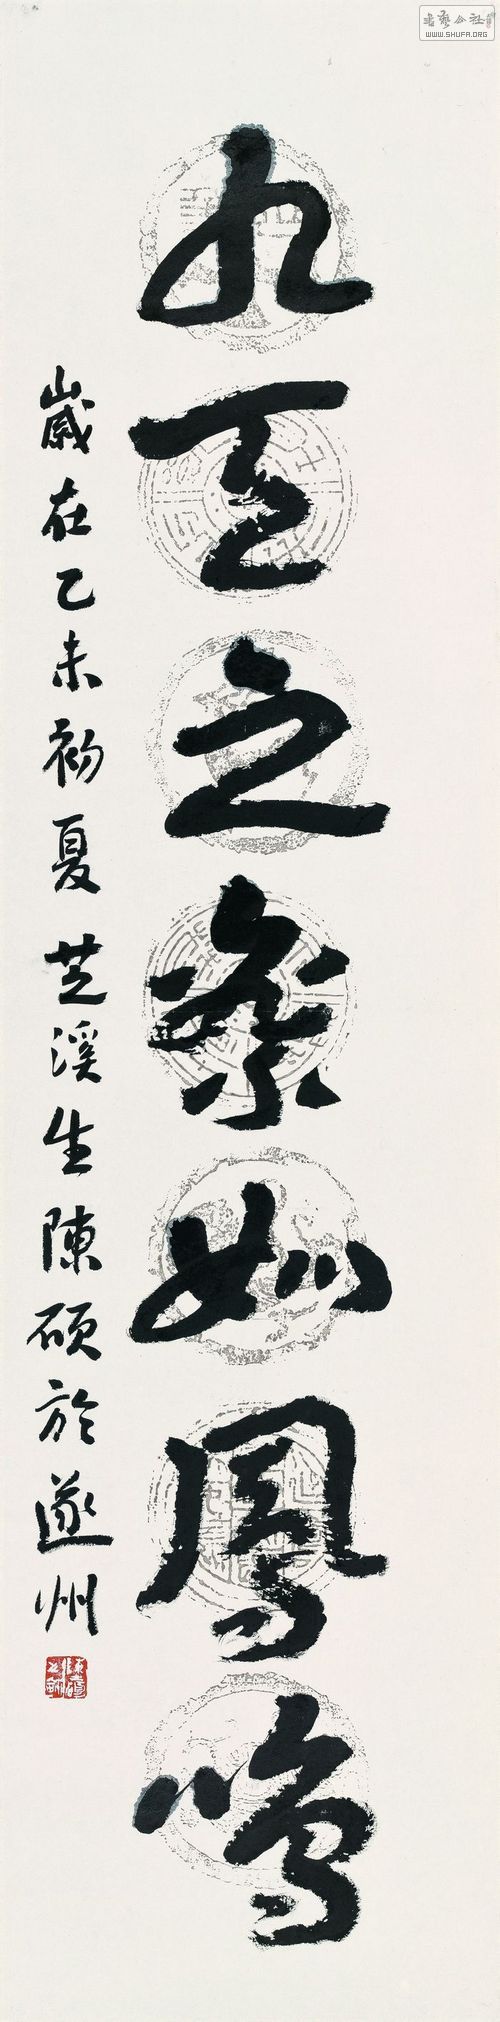 書藝公社
WWW.SHUFA.ORG
九天之樂如鳳鳴
歲在乙未初夏芝溪生陳硕於遂州